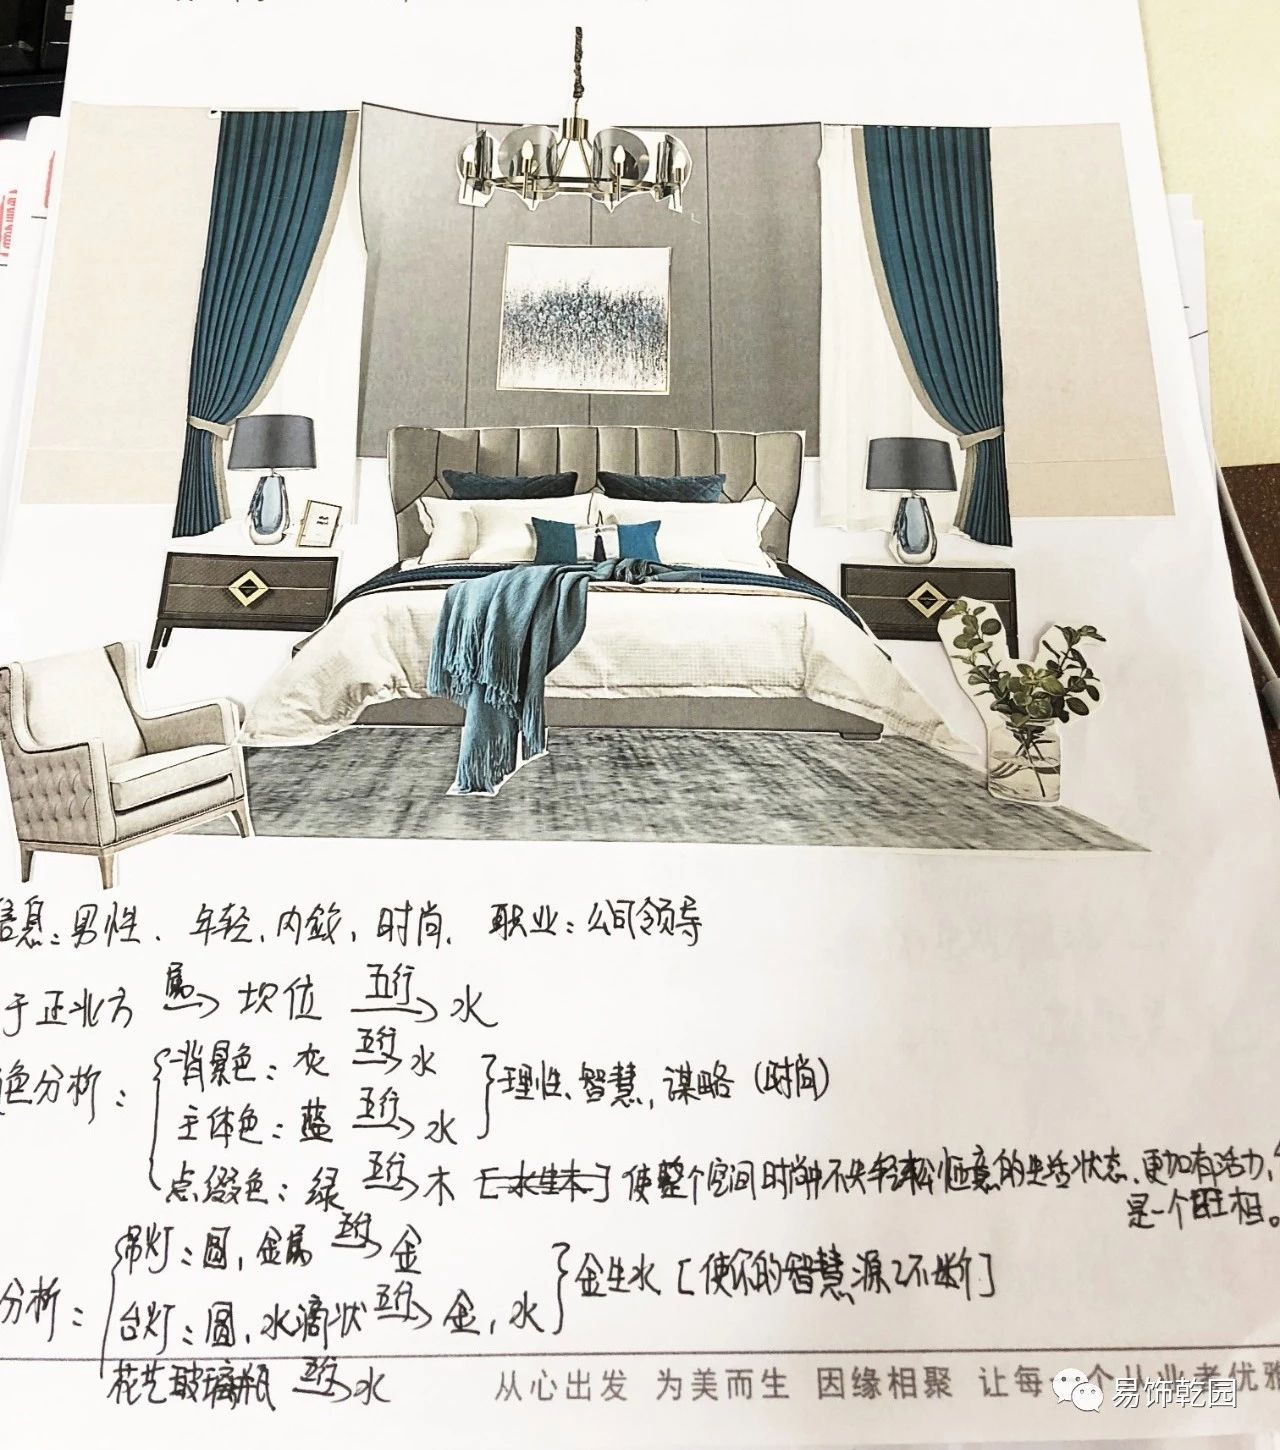 信息：男性、年轻、内敛、时尚、 职业：公司领导
于正北方 属→ 坎位 五行→ 水
色分析：
背景色：灰 五行→ 水
主体色：蓝 五行→ 水
}理性、智慧、谋略（时尚）
点缀色：绿 五行→ 木 [水生木] 使整个空间时尚中不失轻松恒意的生活状态、更加有活力，
是一个旺相。
分析：
吊灯：圆，金属 五行→ 金
台灯：圆，水滴状 五行→ 金，水
}金生水 [使你的智慧源之不断]
花艺玻璃瓶 五行→ 水
从心出发 为美而生 因缘相聚 让每一个从业者优雅
易饰乾园